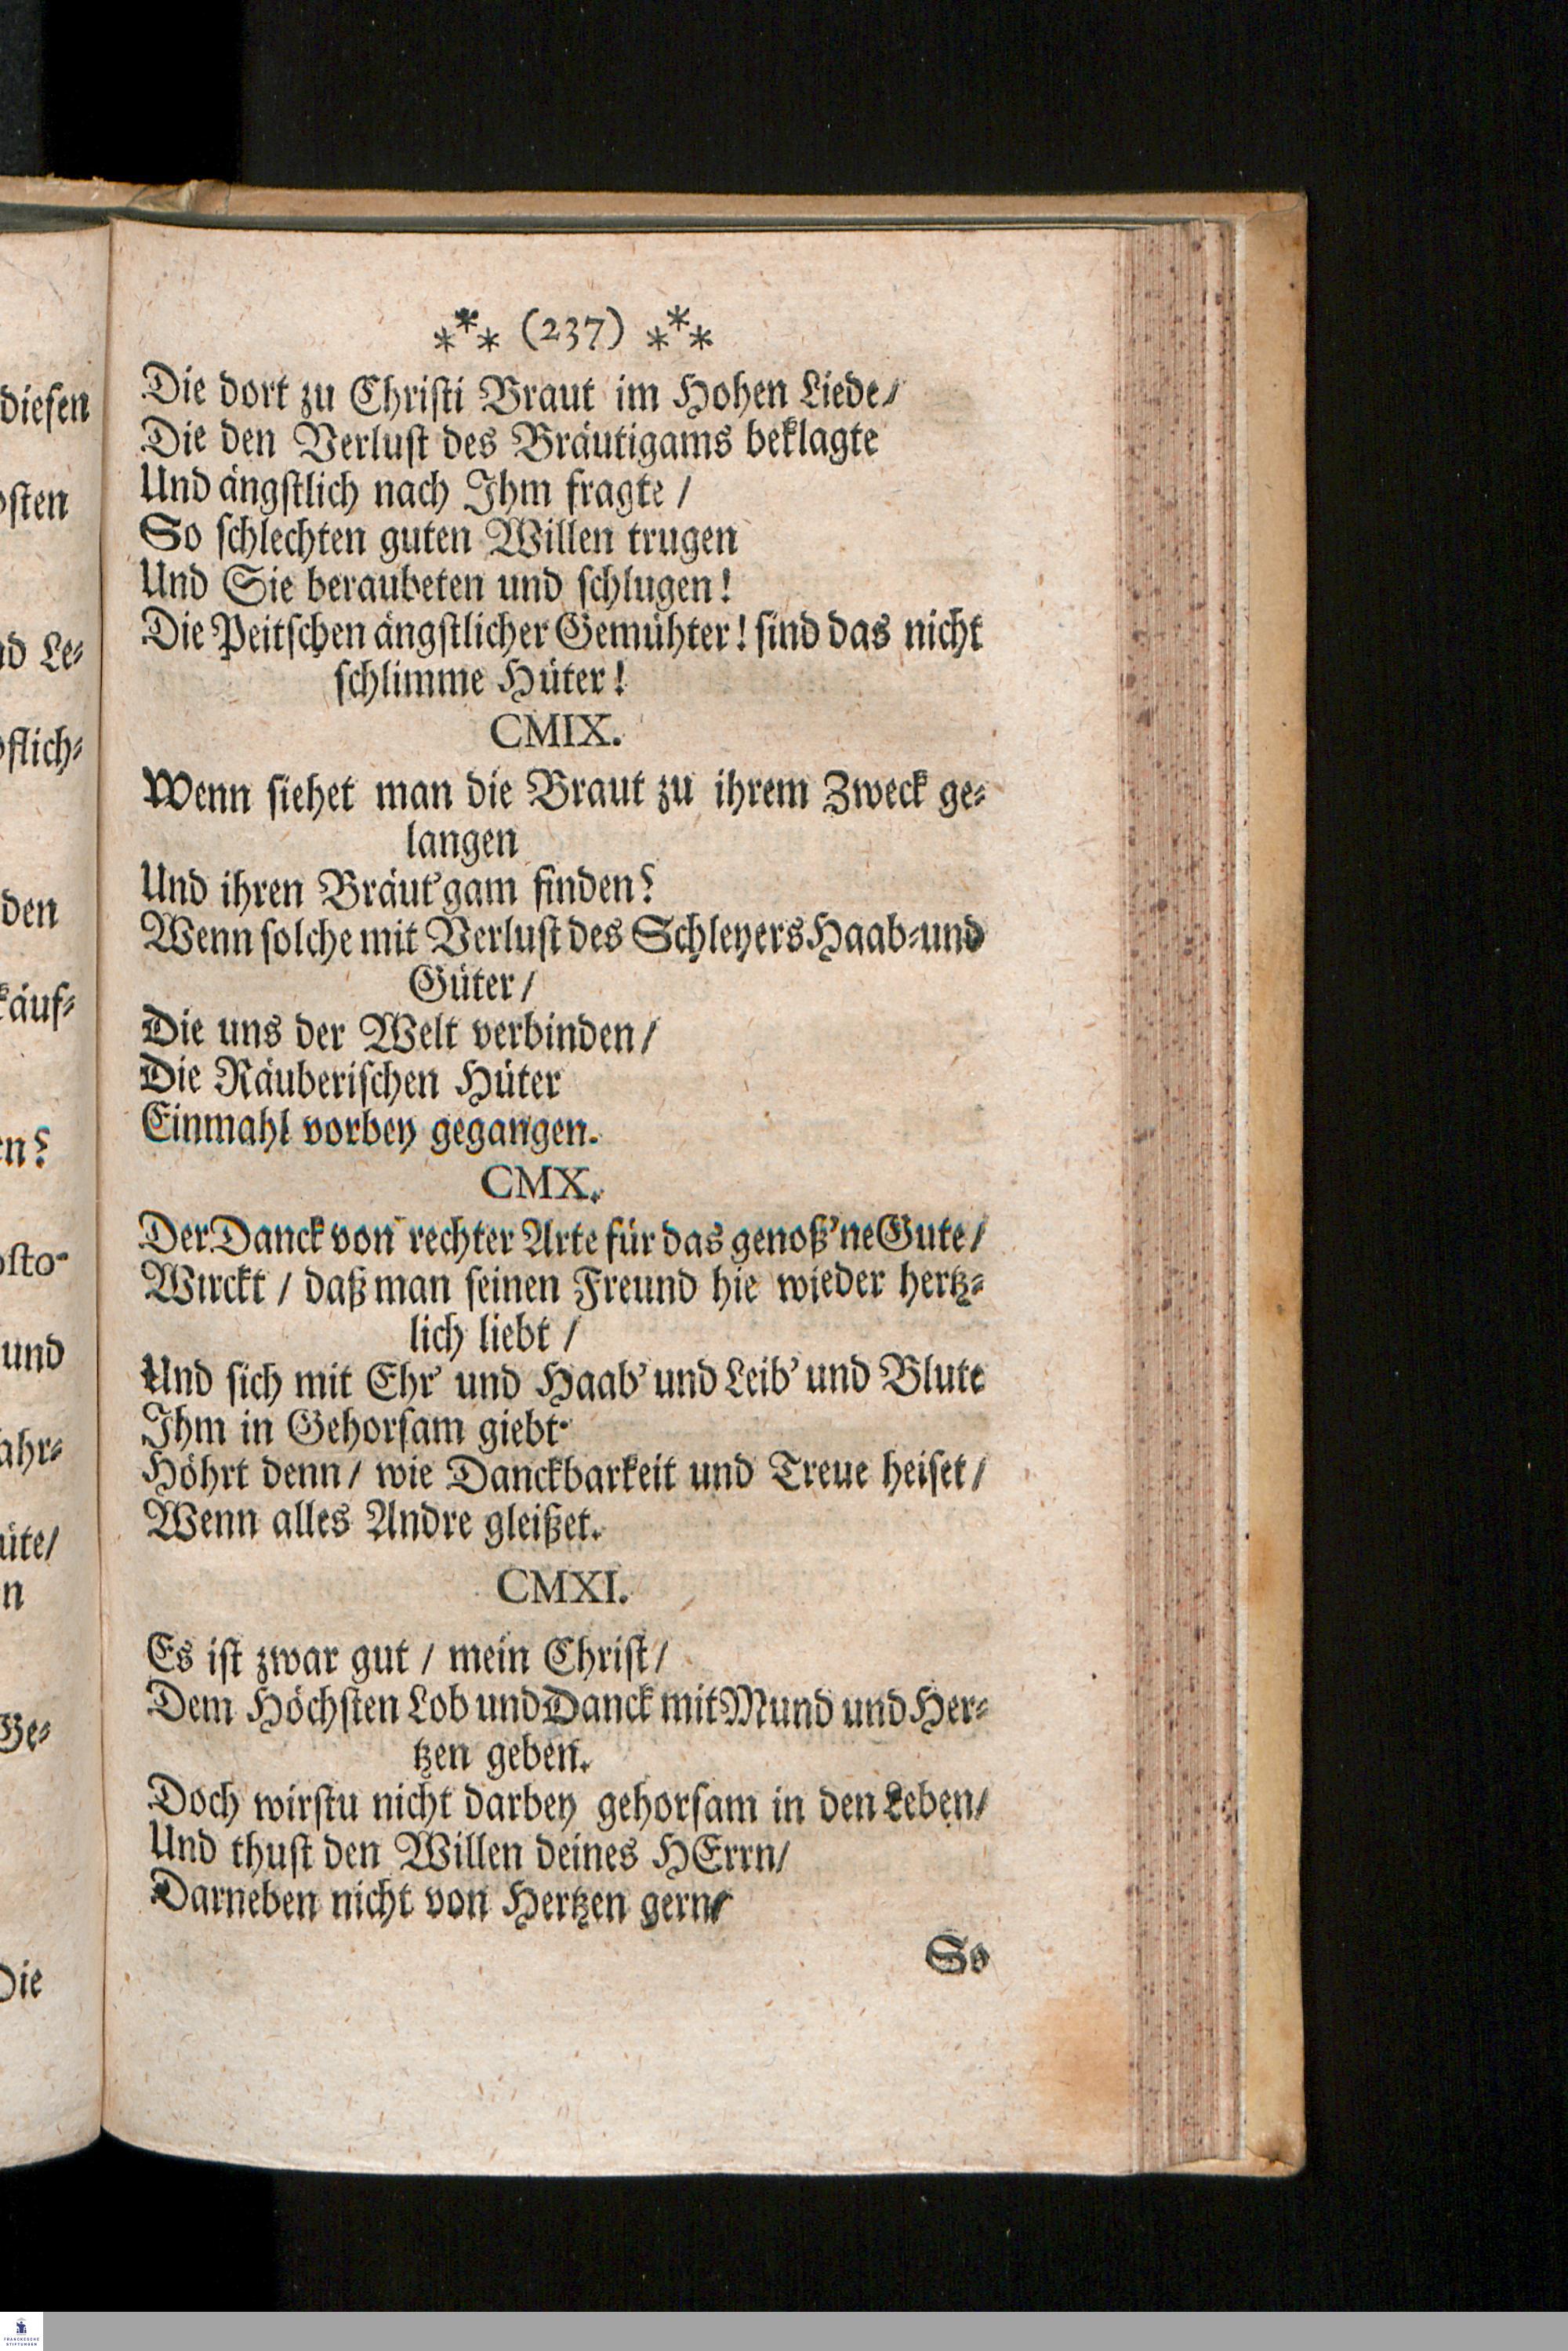 ⁎*⁎ (237) ⁎*⁎
Die dort zu Christi Braut im Hohen Liede/
Die den Verlust des Bräutigams beklagte
Und ängstlich nach Ihm fragte /
So schlechten guten Willen trugen
Und Sie beraubeten und schlugen!
Die Peitschen ängstlicher Gemühter! sind das nicht
schlimme Hüter!
CMIX.
Wenn siehet man die Braut zu ihrem Zweck ge-
langen
Und ihren Bräut'gam finden?
Wenn solche mit Verlust des Schleyers Haab-und
Güter/
Die uns der Welt verbinden/
Die Räuberischen Hüter
Einmahl vorbey gegangen.
CMX.
Der Danck von rechter Arte für das genoß'ne Gute/
Wirckt / daß man seinen Freund hie wieder hertz-
lich liebt /
Und sich mit Ehr' und Haab' und Leib' und Blute
Ihm in Gehorsam giebt.
Höhrt denn/ wie Danckbarkeit und Treue heiset/
Wenn alles Andre gleißet.
CMXI.
Es ist zwar gut / mein Christ/
Dem Höchsten Lob und Danck mit Mund und Her-
tzen geben.
Doch wirstu nicht darbey gehorsam in den Leben/
Und thust den Willen deines HErrn/
Darneben nicht von Hertzen gern/
So
diesen
sten
nd Le-
pflich-
den
käuf-
en?
osto-
und
ahr-
üte/
n
Ge-
Die
FRANCKESCHE
STIFTUNGEN